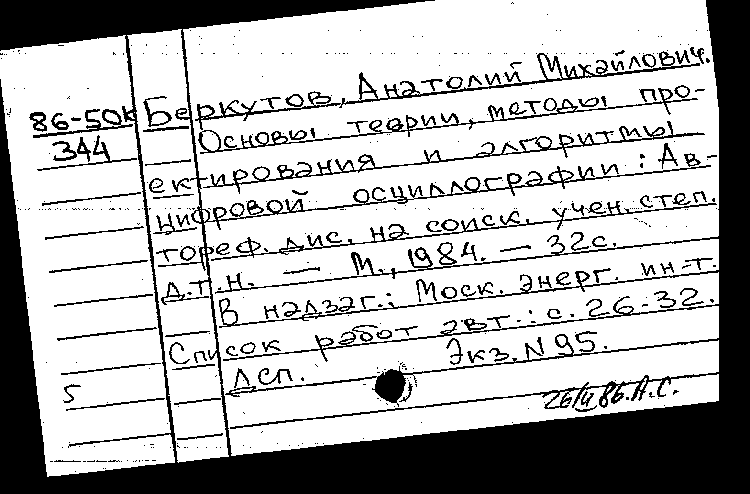 86-50к Беркутов, Анатолий Михайлович.
344 Основы теории, методы про-
ектирования и алгоритмы
цифровой осциллографии : Ав-
тореф. дис. на соиск. учен. степ.
д.т.н. — М., 1984. — 32 с.
В надзаг.: Моск. энерг. ин-т.
Список работ авт.: с. 26-32.
ДСП. Экз. N 95.
5
26/II 86. А.С.